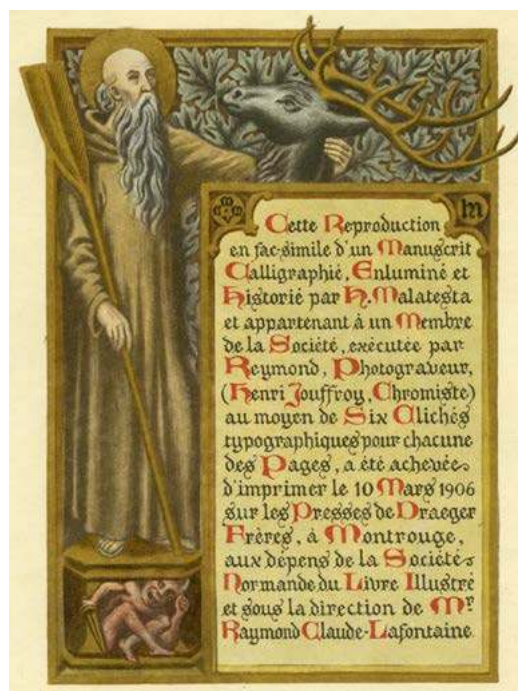 M
Cette Reproduction
en fac-simile d'un Manuscrit
Calligraphié, Enluminé et
Historié par H. Malatesta
et appartenant à un Membre
de la Société, exécutée par
Reymond, Photograveur,
(Henri Jouffroy, Chromiste)
au moyen de Six Clichés
typographiques pour chacune
des Pages, a été achevée
d'imprimer le 10 Mars 1906
sur les Presses de Draeger
Frères, à Montrouge,
aux dépens de la Société
Normande du Livre Illustré
et sous la direction de Mr
Raymond Claude-Lafontaine.